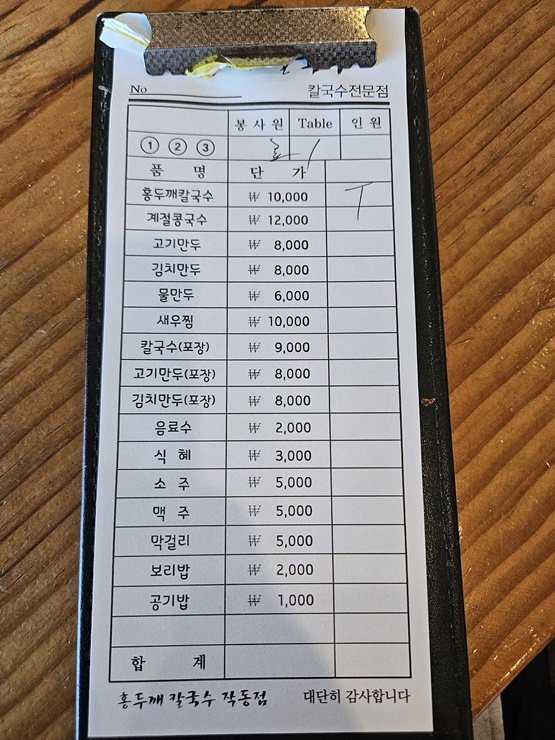 No 칼국수전문점
봉사원 Table 인원
① ② ③
품 명 단 가
홍두깨칼국수 ₩ 10,000 T
계절콩국수 ₩ 12,000
고기만두 ₩ 8,000
김치만두 ₩ 8,000
물만두 ₩ 6,000
새우찜 ₩ 10,000
칼국수(포장) ₩ 9,000
고기만두(포장) ₩ 8,000
김치만두(포장) ₩ 8,000
음료수 ₩ 2,000
식 혜 ₩ 3,000
소 주 ₩ 5,000
맥 주 ₩ 5,000
막걸리 ₩ 5,000
보리밥 ₩ 2,000
공기밥 ₩ 1,000
합 계
홍두깨 칼국수 작동점 대단히 감사합니다